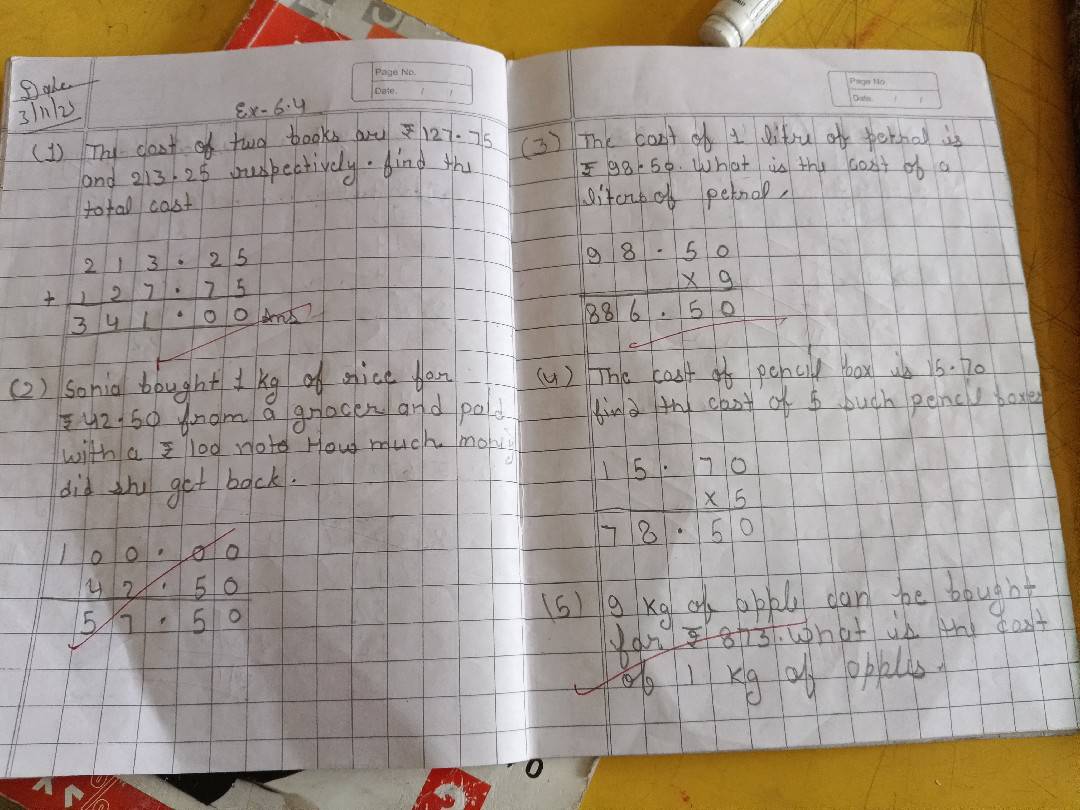 Date
3/11/25
Page No.
Date. / /
Ex-6.4
(1) The cost of two books are ₹127.75
and 213.25 respectively. find the
total cost
213.25
+ 127.75
341.00 Ans
(2) Sonia bought 1 kg of rice for
₹42.50 from a grocer and paid
with a ₹100 note How much money
did she get back.
100.00
42.50
57.50
Page No.
Date. / /
(3) The cost of 1 litre of petral is
₹98.50. What is the cost of a
liters of petral.
98.50
x 9
886.50
(4) The cost of pencil box is 15.70
find the cost of 5 such pencil boxes
15.70
x 5
78.50
(5) 9 kg of apple can be bought
for ₹873. What is the cost
of 1 kg of apples.